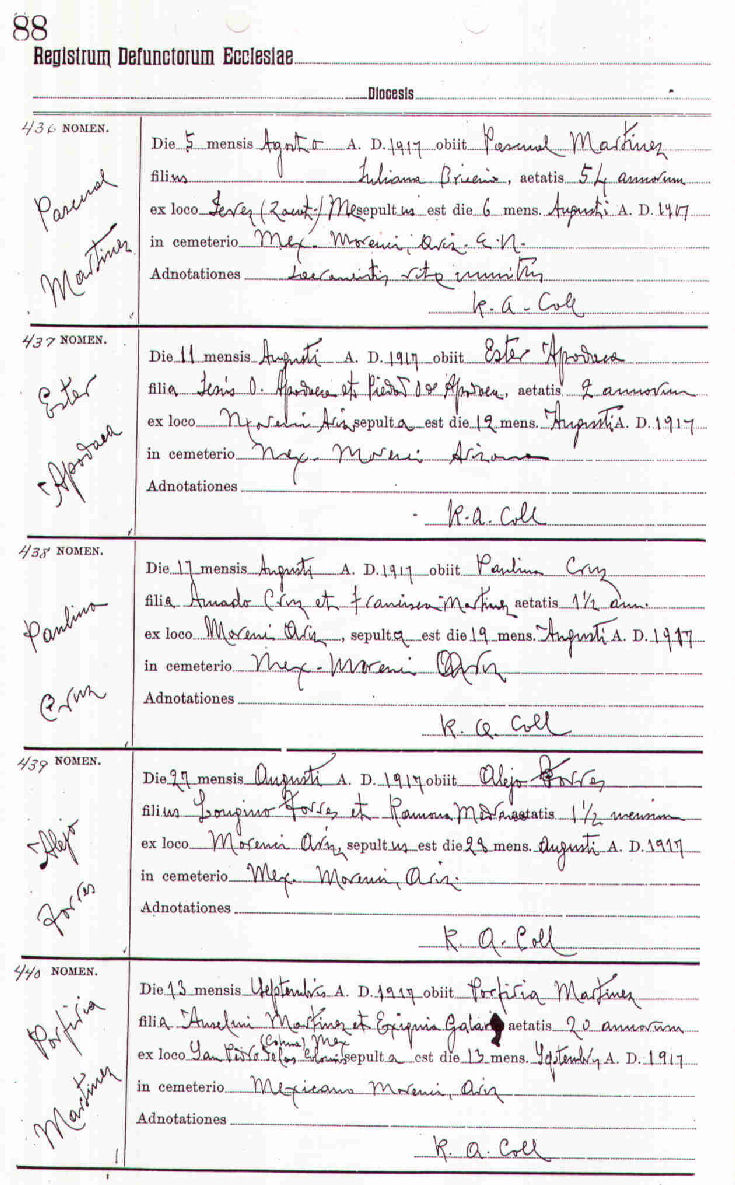 88
Registrum Defunctorum Ecclesiae
Diocesis
436 NOMEN.
Pascual Martinez
Die 5 mensis Agosto A. D. 1917 obiit Pascual Martinez
filius Juliana aetatis 54 annorum
ex loco Jerez (Zacat.) Me sepultus est die 6 mens. Augusti A. D. 1917
in cemeterio Mex. Morenci, Ariz. E.N.
Adnotationes Sacramentis rite munitus
R. A. Coll
437 NOMEN.
Ester Apodaca
Die 11 mensis Augusti A. D. 1917 obiit Ester Apodaca
filia O. Apodaca et de Apodaca, aetatis 2 annorum
ex loco Morenci Ariz sepulta est die 12 mens. Augusti A. D. 1917
in cemeterio Mex. Morenci Arizona
Adnotationes
R. A. Coll
438 NOMEN.
Paulina Cruz
Die 17 mensis Augusti A. D. 1917 obiit Paulina Cruz
filia Amado Cruz et Francisca Martinez aetatis 1½ ann.
ex loco Morenci Ariz, sepulta est die 19 mens. Augusti A. D. 1917
in cemeterio Mex. Morenci Ariz
Adnotationes
R. A. Coll
439 NOMEN.
Alejo Torres
Die 27 mensis Augusti A. D. 1917 obiit Alejo Torres
filius Longino Torres et Ramona aetatis 1½ mensium
ex loco Morenci Ariz, sepultus est die 28 mens. Augusti A. D. 1917
in cemeterio Mex. Morenci, Ariz.
Adnotationes
R. A. Coll
440 NOMEN.
Porfiria Martinez
Die 13 mensis Septembris A. D. 1917 obiit Porfiria Martinez
filia Anselmi Martinez et aetatis 20 annorum
ex loco San Pedro de las Colonias Mex sepulta est die 13 mens. Septembris A. D. 1917
in cemeterio Mexicano Morenci, Ariz
Adnotationes
R. A. Coll